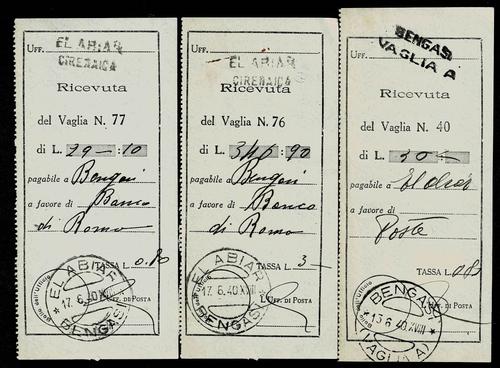 UFF.
EL ABIAR
CIRENAICA
Ricevuta
del Vaglia N. 77
di L. 29 — : 10
pagabile a Bengasi
a favore di Banco
di Roma
TASSA L. 0.80
L'UFF. DI POSTA
EL ABIAR
* 17. 6. 40 XVIII *
BENGASI
UFF.
EL ABIAR
CIRENAICA
Ricevuta
del Vaglia N. 76
di L. 90
pagabile a Bengasi
a favore di Banco
di Roma
TASSA L. 3 —
L'UFF. DI POSTA
EL ABIAR
17. 6. 40 XVIII
BENGASI
UFF.
BENGASI
VAGLIA A
Ricevuta
del Vaglia N. 40
di L.
pagabile a El Abiar
a favore di
Poste
TASSA L. 0.80
L'UFF. DI POSTA
BENGASI
* 13 6. 40. XVIII *
(VAGLIA A)